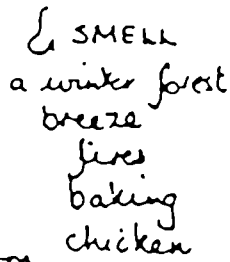 & SMELL
a winter forest
breeze
fires
baking
chicken